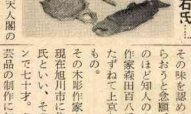 石氏…
天人閣の
その味を認め
らおうと念願
のほど知人の
作家森田百八
たずねて上京
もの。
その木彫作家
現在旭川市に
氏といい、そ
ンで七十才。
芸品の制作に